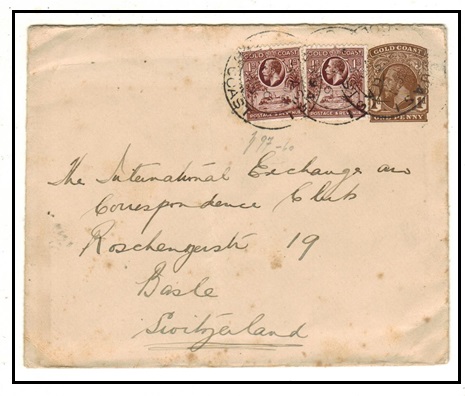 GOLD COAST
GOLD COAST
GOLD COAST
POSTAGE & REVENUE
POSTAGE & REV
ONE PENNY
COAST
The International Exchange and
Correspondence Club
19
Basle
Switzerland